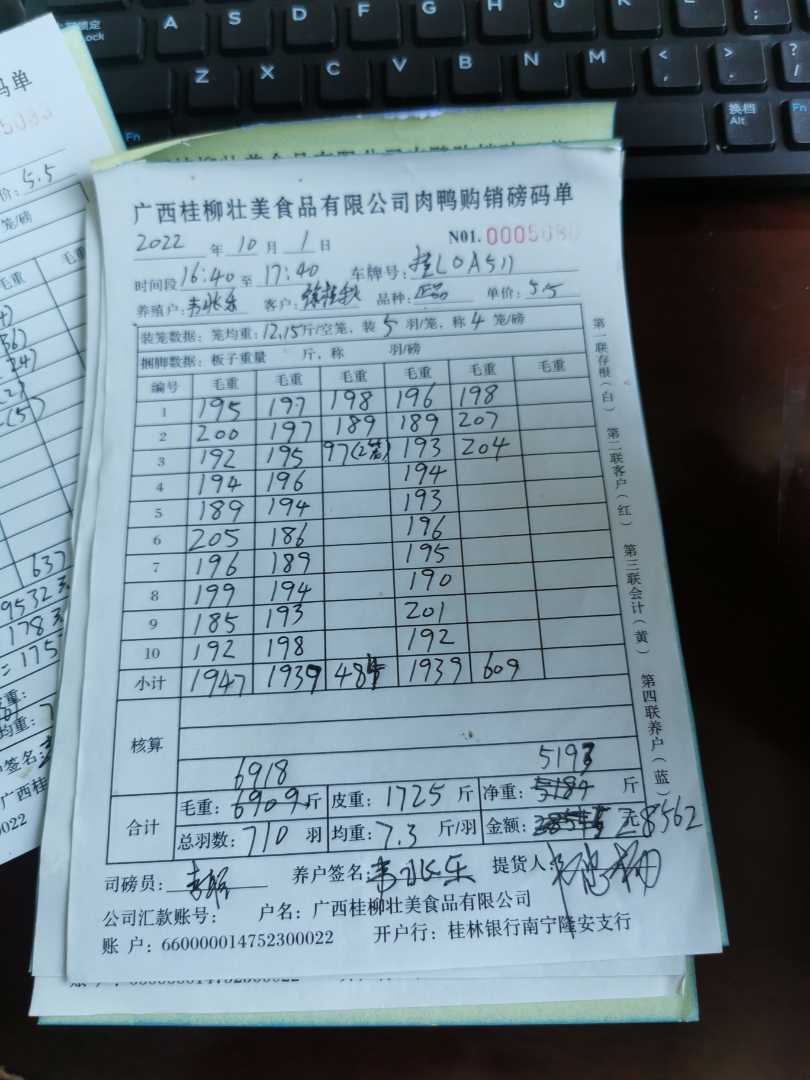 广西桂柳壮美食品有限公司肉鸭购销磅码单
2022 年 10 月 1 日 N01. 0005080
时间段 16:40 至 17:40 车牌号: 桂LOA511
养殖户: 韦兆乐 客户: 品种: 正品 单价: 5.5
装笼数据: 笼均重: 12.15斤/空笼, 装 5 羽/笼, 称 4 笼/磅
捆脚数据: 板子重量 斤, 称 羽/磅
编号 毛重 毛重 毛重 毛重 毛重 毛重
1 195 197 198 196 198
2 200 197 189 189 207
3 192 195 97(2笼) 193 204
4 194 196 194
5 189 194 193
6 205 186 196
7 196 189 195
8 199 194 190
9 185 193 201
10 192 198 192
小计 1947 1939 484 1939 609
核算
6918 5193
合计 毛重: 6909斤 皮重: 1725 斤 净重: 5184 斤
总羽数: 710 羽 均重: 7.3 斤/羽 金额: 元 28562
司磅员: 养户签名: 韦兆乐 提货人:
公司汇款账号: 户名: 广西桂柳壮美食品有限公司
账 户: 660000014752300022 开户行: 桂林银行南宁隆安支行
第一联存根(白) 第二联客户(红) 第三联会计(黄) 第四联养户(蓝)
码单
价: 5.5
笼/磅
毛重
637
9532
178
= 175
皮重:
均重:
户签名:
广西桂
0022
A S D F G H J K L
Z X C V B N M
换挡
Alt
Fn
Lock
Fn